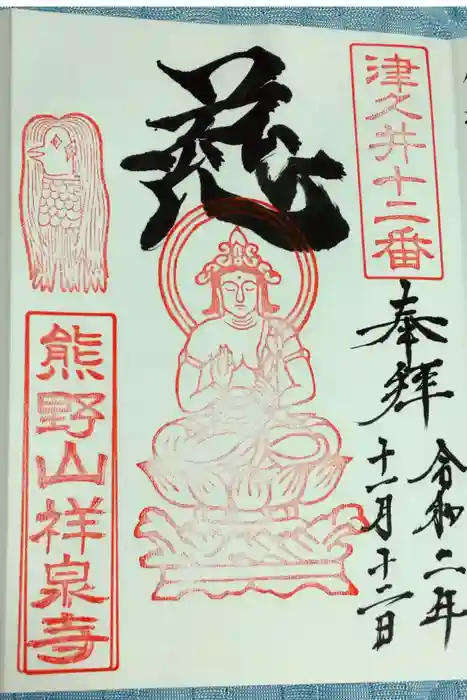 津久井十二番
奉拝
令和二年
十一月十二日
慈
熊野山祥泉寺